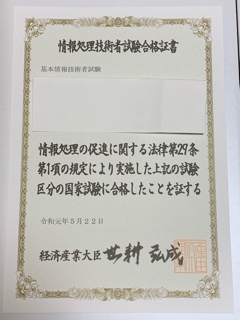 情報処理技術者試験合格証書
基本情報技術者試験
情報処理の促進に関する法律第29条
第1項の規定により実施した上記の試験
区分の国家試験に合格したことを証する
令和元年5月22日
経済産業大臣 世耕弘成